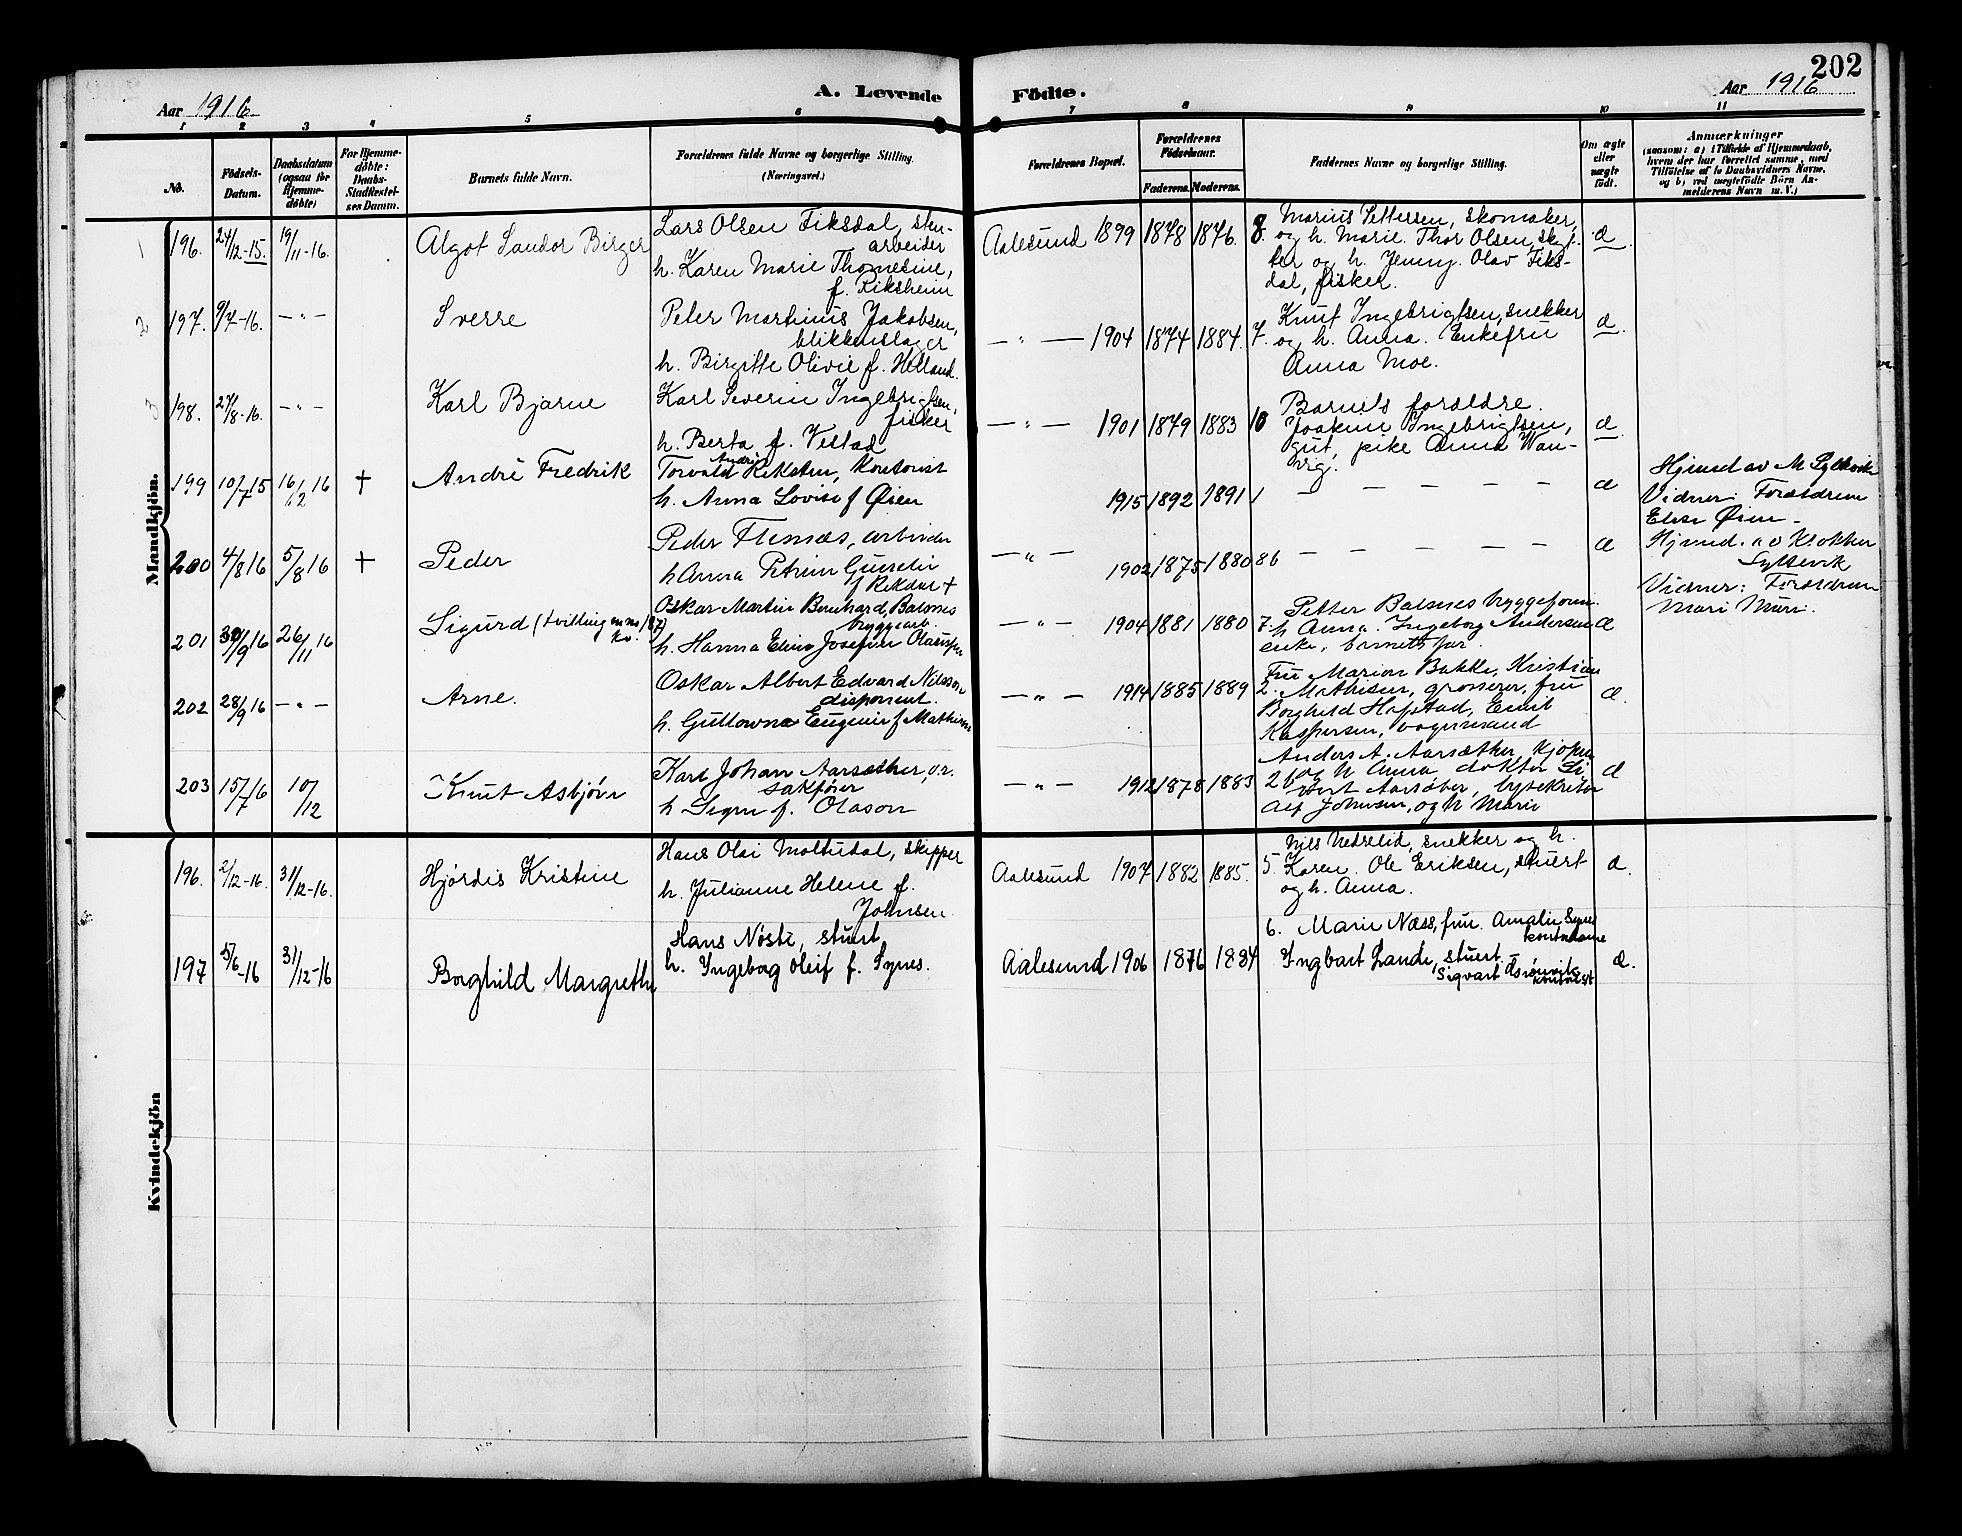 202
Aar 1916
A. Levende
Födte.
Aar 1916
1 2 3 4 5 6 7 8 9 10 11
No.
Födsels-
Datum.
Daabsdatum
(ogsaa for
Hjemme-
döbte)
For Hjemme-
döbte:
Daabs-
Stadfestel-
ses Datum.
Barnets fulde Navn.
Forældrenes fulde Navne og borgerlige Stilling.
(Næringsvei.)
Forældrenes Bopæl.
Forældrenes
Födselsaar.
Faderens. Moderens.
Faddernes Navne og borgerlige Stilling.
Om ægte
eller
uægte
födt.
Anmærkninger
(saasom: a) i Tilfælde af Hjemmedaab,
hvem der har forrettet samme, med
Tilföielse af to Daabsvidners Navne,
og b) ved uægtefödte Börn An-
melderens Navn m. V.)
Mandkjön.
1
196. 24/12-15. 19/11-16. Algot Sandor Birger
Lars Olsen Fiksdal, sten-
arbeider
h. Karen Marie Thomesine,
f. Riksheim
Aalesund 1899 1878 1876. 8.
Marius Pettersen, skomaker,
og h. Marie. Thor Olsen,
og h. Jenny. Olav Fiks-
dal, fisker.
æ.
2
197. 9/7-16. — " — Sverre
Peter Martinus Jakobsen,
blikkenslager
h. Birgitte Olivie f. Helland.
— " — 1904 1874 1884. 7.
Knut Ingebrigtsen, snekker
og h. Anna. Enkefru
Anna Moe.
æ.
3
198. 27/8-16. — " — Karl Bjarne
Karl Severin Ingebrigtsen,
fisker
h. Berta f. Vestad
— " — 1901 1879 1883 10
Barnets forældre.
Joakim Ingebrigtsen,
gut, pike Anna Wan-
vig.
æ
199 10/7 15 16/12 16 † André Fredrik
Torvald Andrias Reksten, kontorist
h. Anna Lovise f Øien
1915 1892 1891 1 — — — — —
æ
Hjmd av M Syltevik
Vidner: Forældrene
Elise Øien —
200 4/8 16 5/8 16 † Peder
Peder Flemæs, arbeider
h Anna Petrine
f Rekdal †
— " — 1902 1875 1880 86 — — — — —
æ
Hjmd. av Klokker
Syltevik
Vidner: Forældrene
Mari Muri.
201 30/9 16 26/11 16 Sigurd (tvilling m no 187
kv.
Oskar Martin Bernhard Balsnes
bryggearb.
h. Hanna Eline Josefine
— " — 1904 1881 1880 7.
Petter Balsnes bryggeform.
h Anna. Ingeborg Andersen
enke, barnets far.
æ
202 28/9 16 — " — Arne.
Oskar Albert Edvard Nilsson
disponent.
h. Eugenie f Mathisen
— " — 1914 1885 1889 2.
Fru Marion Bakke, Kristian
Mathisen, grosserer, fru
Borghild Hofstad, Emil
Kaspersen, vognmand
æ.
203 15/7 16 10/12 Knut Asbjørn
Karl Johan Aarsæther, o.r.
sakfører
h Signe f. Olason
— " — 1912 1878 1883 2
Anders A. Aarsæther, kjøbm
og h Anna, doktor Si-
vert Aarsæther, bysekretær
Alf Johnsen, og h Marie
æ
Kvindekjön
196. 2/12-16. 31/12-16. Hjørdis Kristine
Hans Olai Moltudal, skipper
h. Julianne Helene f.
Johnsen.
Aalesund 1907 1882 1885. 5.
Nils Nedrelid, snekker og h.
Karen. Ole Eriksen, stuert
og h. Anna.
æ.
197 5/6-16 31/12-16 Borghild Margrethe
Hans Nøste, stuert
h. Ingeborg Oleif f. Synes.
Aalesund 1906 1876 1884
6. Marie Næss, fru. Amalie Synes
kontordame
Ingbart Lande, stuert.
Sigvart
kontorist
æ.